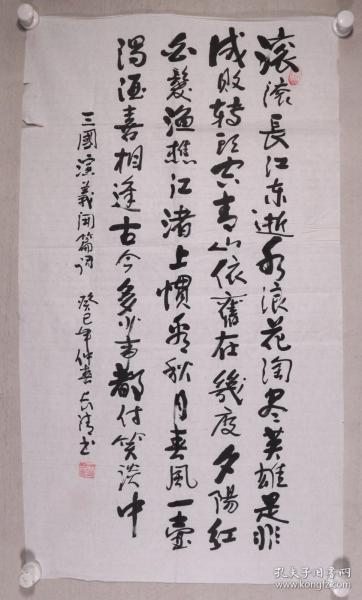 滚滚長江东逝水浪花淘尽英雄是非
成敗转头空青山依舊在幾度夕陽红
白髮渔樵江渚上惯看秋月春風一壶
濁酒喜相逢古今多少事都付笑談中
三國演義開篇词 癸巳年仲春长清书
孔夫子旧书网